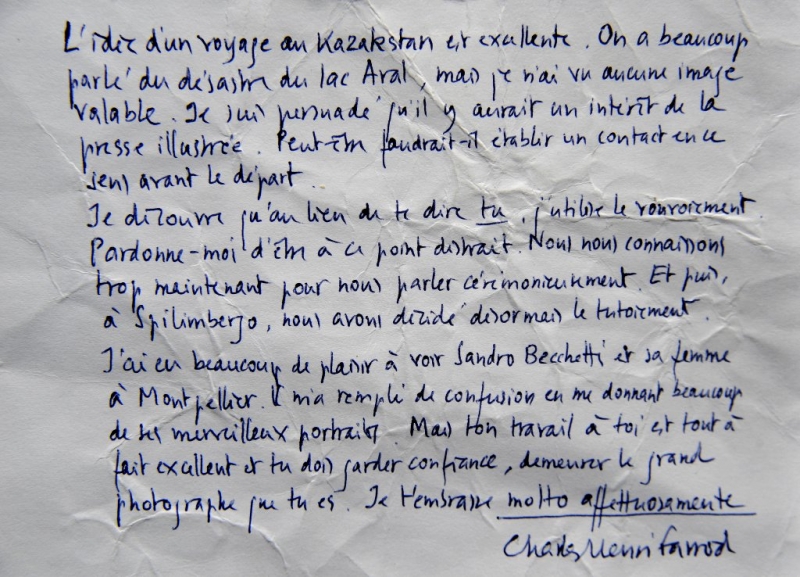 L'idée d'un voyage au Kazakstan est excellente. On a beaucoup
parlé du désastre du lac Aral, mais je n'ai vu aucune image
valable. Je suis persuadé qu'il y aurait un intérêt de la
presse illustrée. Peut-être faudrait-il établir un contact en ce
sens avant le départ.
Je découvre qu'au lieu de te dire tu, j'utilise le vouvoiement.
Pardonne-moi d'être à ce point distrait. Nous nous connaissons
trop maintenant pour nous parler cérémonieusement. Et puis,
à Spilimbergo, nous avons décidé désormais le tutoiement.
J'ai eu beaucoup de plaisir à voir Sandro Becchetti et sa femme
à Montpellier. Il m'a rempli de confusion en me donnant beaucoup
de ses merveilleux portraits. Mais ton travail à toi est tout à
fait excellent et tu dois garder confiance, demeurer le grand
photographe que tu es. Je t'embrasse molto affettuosamente
Charles Henri Favrod